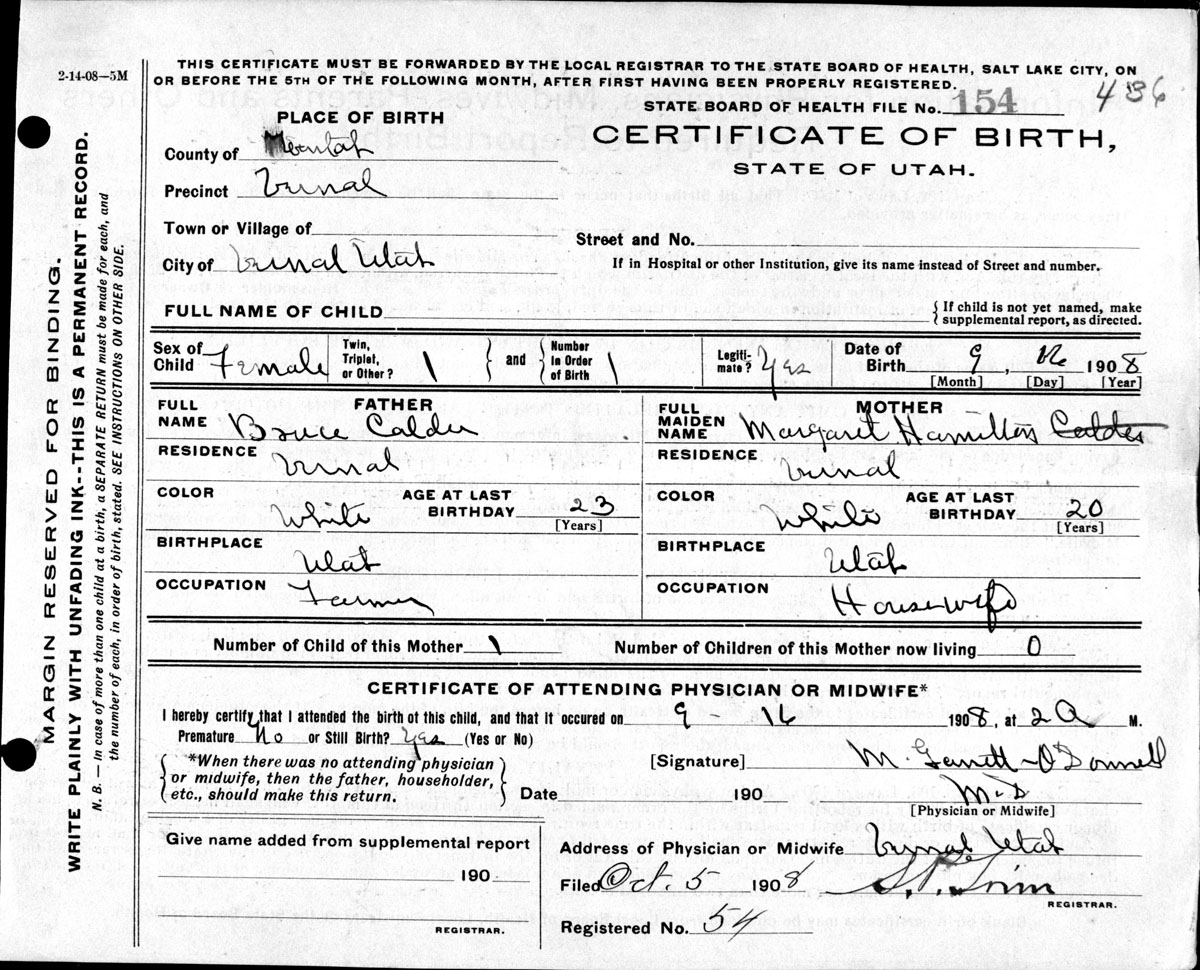 2-14-08—5M
THIS CERTIFICATE MUST BE FORWARDED BY THE LOCAL REGISTRAR TO THE STATE BOARD OF HEALTH, SALT LAKE CITY, ON
OR BEFORE THE 5TH OF THE FOLLOWING MONTH, AFTER FIRST HAVING BEEN PROPERLY REGISTERED.
STATE BOARD OF HEALTH FILE No. 154 436
PLACE OF BIRTH
CERTIFICATE OF BIRTH,
STATE OF UTAH.
County of
Precinct Vernal
Town or Village of
Street and No.
City of Vernal Utah
If in Hospital or other Institution, give its name instead of Street and number.
FULL NAME OF CHILD
{ If child is not yet named, make
supplemental report, as directed.
Sex of Child Female
Twin, Triplet, or Other? 1 } and { Number in Order of Birth 1
Legiti-mate? Yes
Date of Birth 9, 16 1908
[Month] [Day] [Year]
FATHER
FULL NAME Bruce Calder
RESIDENCE Vernal
COLOR White
AGE AT LAST BIRTHDAY 23
[Years]
BIRTHPLACE Utah
OCCUPATION Farmer
MOTHER
FULL MAIDEN NAME Margaret Hamilton Calder
RESIDENCE Vernal
COLOR White
AGE AT LAST BIRTHDAY 20
[Years]
BIRTHPLACE Utah
OCCUPATION Housewife
Number of Child of this Mother 1 Number of Children of this Mother now living 0
CERTIFICATE OF ATTENDING PHYSICIAN OR MIDWIFE*
I hereby certify that I attended the birth of this child, and that it occured on 9 - 16 1908, at 2 A M.
Premature No or Still Birth? Yes (Yes or No)
{ *When there was no attending physician
or midwife, then the father, householder,
etc., should make this return. }
[Signature] M. Garrett-O'Donnell
Date 190 M.D
[Physician or Midwife]
Give name added from supplemental report
190
REGISTRAR.
Address of Physician or Midwife Vernal Utah
Filed Oct. 5 1908
REGISTRAR.
Registered No. 54
MARGIN RESERVED FOR BINDING.
WRITE PLAINLY WITH UNFADING INK--THIS IS A PERMANENT RECORD.
N. B. — In case of more than one child at a birth, a SEPARATE RETURN must be made for each, and
the number of each, in order of birth, stated. SEE INSTRUCTIONS ON OTHER SIDE.